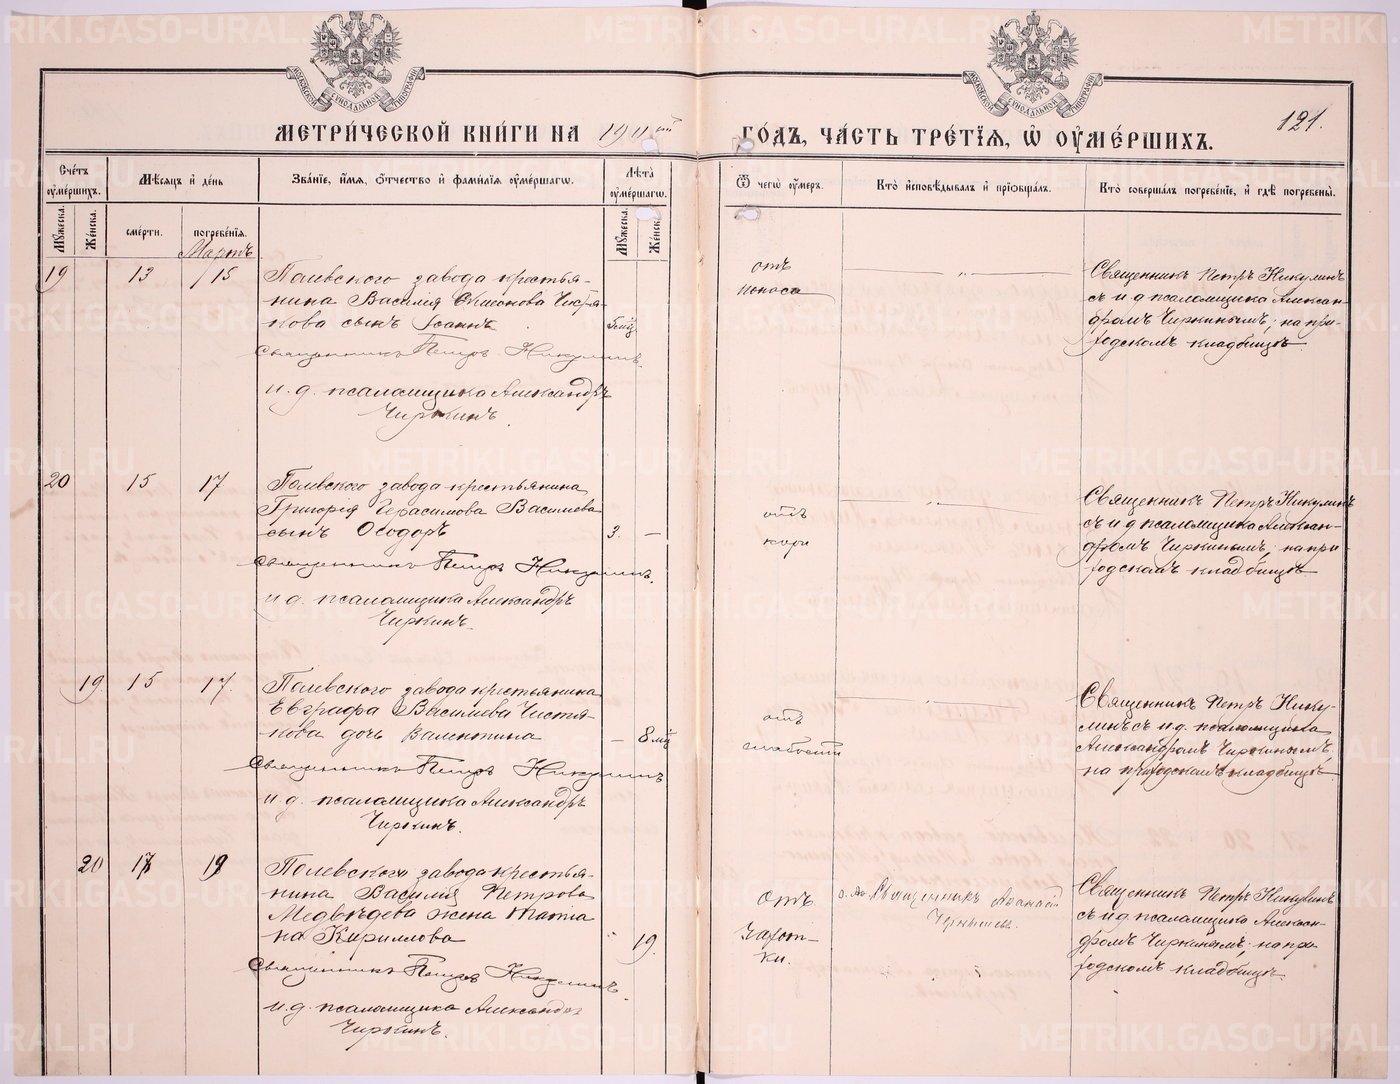 МЕТРИ́ЧЕСКОЙ КНИ́ГИ НА 1911 ый ГО́ДЪ, ЧА́СТЬ ТРЕ́ТІѦ, Ѡ҆ ОУ҆МЕ́РШИХЪ.
121.
Сче́тъ оу҆ме́ршихъ.
Мѣ́сѧцъ и҆ де́нь
Зва́нїе, и҆́мѧ, ѻ҆́тчество и҆ фами́лїѧ оу҆ме́ршагѡ.
Лѣ́та оу҆ме́ршагѡ.
Ѿ чегѡ̀ оу҆́меръ.
Кто̀ и҆сповѣ́дывалъ и҆ прїѡбща́лъ.
Кто̀ соверша́лъ погребе́нїе, и҆ гдѣ̀ погребены̀.
Мꙋ́жеска.
Же́нска.
сме́рти.
погребе́нїѧ.
Мꙋ́жеска.
Же́нска.
Мартъ
19 13 15
Полевского завода крестья-
нина Василія Симеонова Чистя-
кова сынъ Іоаннъ
5 мц
Священникъ Петръ Никулинъ.
и. д. псаломщика Александръ
Чиркинъ.
отъ
поноса
Священникъ Петръ Никулинъ
съ и д псаломщика Алексан-
дромъ Чиркинымъ; на при-
ходскомъ кладбищѣ
20 15 17
Полевского завода крестьянина
Григорія Герасимова Васильева
сынъ Ѳеодоръ
3. —
Священникъ Петръ Никулинъ.
и д. псаломщика Александръ
Чиркинъ.
отъ
кори
Священникъ Петръ Никулинъ
съ и д псаломщика Алексан-
дромъ Чиркинымъ; на при-
ходскомъ кладбищѣ
19 15 17.
Полевского завода крестьянина
Евграфа Васильева Чистя-
кова дочь Валентина
— 8 мц
Священникъ Петръ Никулинъ
и. д. псаломщика Александръ
Чиркинъ.
отъ
слабости
Священникъ Петръ Нику-
линъ съ и. д. псаломщика
Александромъ Чиркинымъ,
на приходскомъ кладбищѣ
20 17 19
Полевского завода крестья-
нина Василія Петрова
Медвѣдева жена Татіа
на Кириллова
19.
Священникъ Петръ Никулинъ.
и. д. псаломщика Александръ
Чиркинъ.
отъ
чахот-
ки.
Священникъ
Священникъ Петръ Никулинъ
съ и д. псаломщика Алексан-
дромъ Чиркинымъ; на при
ходскомъ кладбищѣ
METRIKI.GASO-URAL.RU